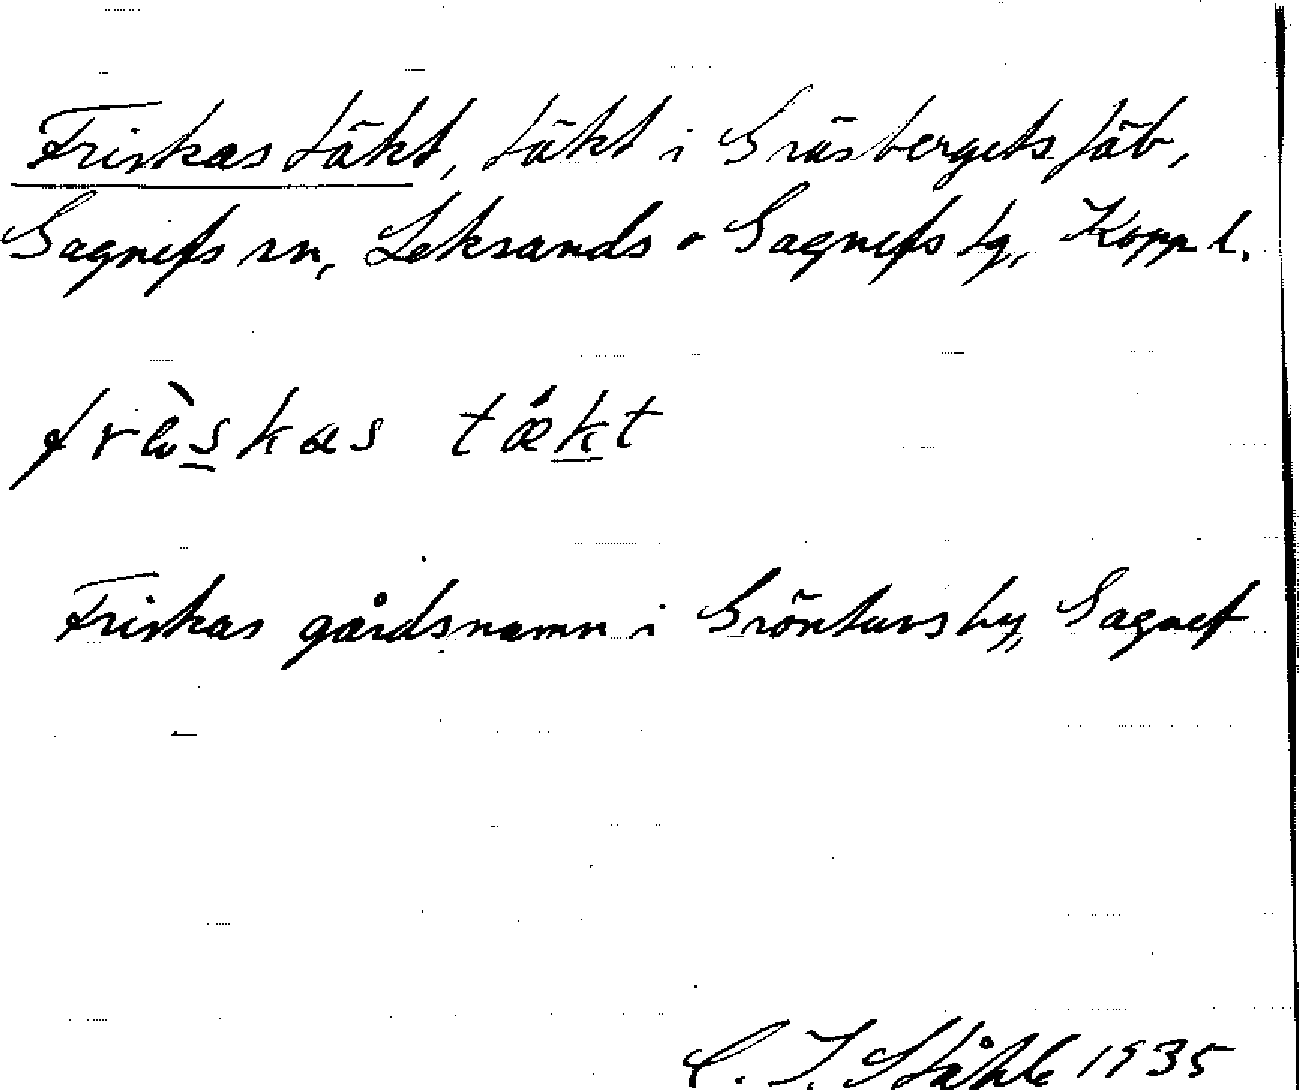 Friskas täkt, täkt i Gräsbergets fäb,
Gagnefs sn, Leksands o Gagnefs tg, Kopp l.
täkt
Friskas gårdsnamn i Gröntuvs by, Gagnef
C. I. Ståhle 1935